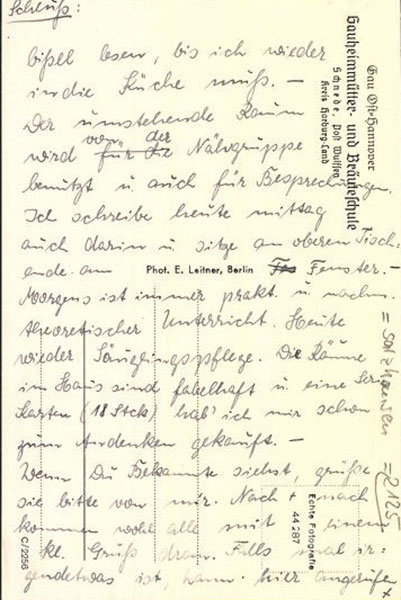 Schluß:
bißll lesen, bis ich wieder
in die Küche muß. —
Der umstehende Raum
wird für die von der Nähgruppe
benützt u. auch für Besprechungen.
Ich schreibe heute mittag
auch darin u. sitze am oberen Tisch-
ende am Fenster. —
Morgens ist immer prakt. u. nachm.
theoretischer Unterricht. Heute
wieder Säuglingspflege. Die Räume
im Haus sind fabelhaft u. eine Serie
Karten (18 Stck) hab' ich mir schon
zum Andenken gekauft. —
Wenn Du Bekannte siehst, grüße
sie bitte von mir. Nach + nach
kommen wohl alle mit einem
kl. Gruß dran. Falls mal ir-
gendetwas ist, kann hier angerufen
Gau Ost-Hannover
Gauheimmütter- und Bräuteschule
Schnede, Post Wulfsen
Kreis Harburg-Land
= Salzhausen = 2125
Phot. E. Leitner, Berlin
Echte Fotografie
44 287
C/2256